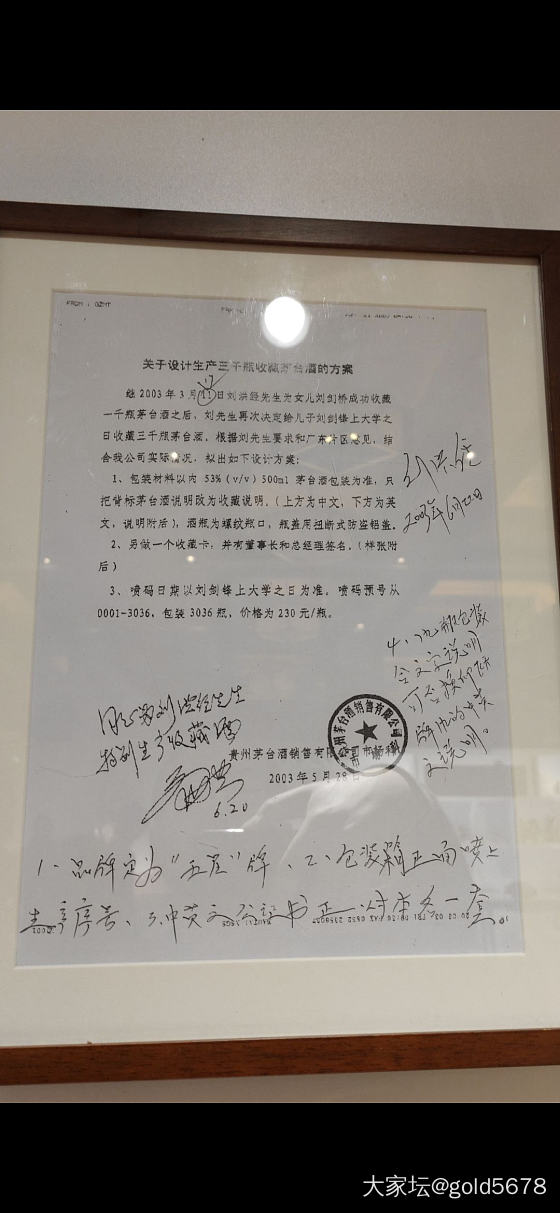 FROM : GZMT
关于设计生产三千瓶收藏茅台酒的方案
17
继2003年3月11日刘洪经先生为女儿刘剑桥成功收藏
一千瓶茅台酒之后，刘先生再次决定给儿子刘剑锋上大学之
日收藏三千瓶茅台酒。根据刘先生要求和广东片区意见，结
合我公司实际情况，拟出如下设计方案：
1、包装材料以内53%（v/v）500ml茅台酒包装为准，只
把背标茅台酒说明改为收藏说明。（上方为中文，下方为英
文，说明附后），酒瓶为螺纹瓶口，瓶盖用扭断式防盗铝盖。
2、另做一个收藏卡，并有董事长和总经理签名。（样张附
后）
3、喷码日期以刘剑锋上大学之日为准。喷码预号从
0001-3036，包装3036瓶，价格为230元/瓶。
刘洪经
2003年6月20日
4、酒瓶包装
含文字说明
可否换
牌的中英
文说明。
同意为刘洪经先生
特别生产收藏酒
6.20
贵州茅台酒销售有限公司市场科
2003年5月28日
贵州茅台酒销售有限公司
市
1、品牌定为“五星”牌、2、包装箱正面喷上
序号、3、中英文公证书正、付本各一套。
大家坛@gold5678